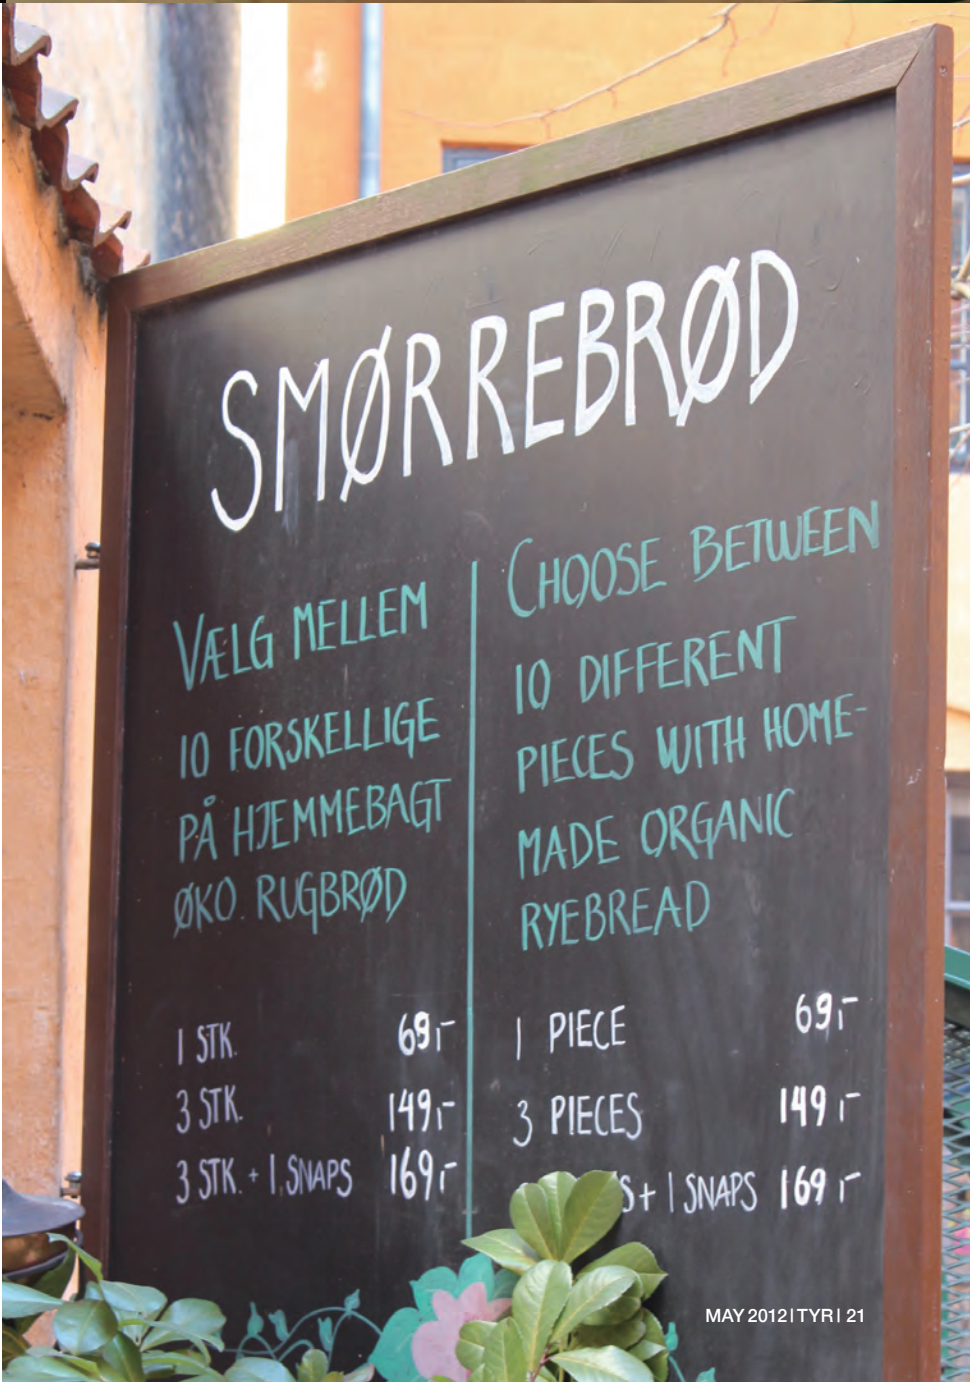 SMØRREBRØD
VÆLG MELLEM
10 FORSKELLIGE
PÅ HJEMMEBAGT
ØKO. RUGBRØD
1 STK. 69,-
3 STK. 149,-
3 STK. + 1 SNAPS 169,-
CHOOSE BETWEEN
10 DIFFERENT
PIECES WITH HOME-
MADE ORGANIC
RYEBREAD
1 PIECE 69,-
3 PIECES 149,-
S + 1 SNAPS 169,-
MAY 2012 | TYR | 21